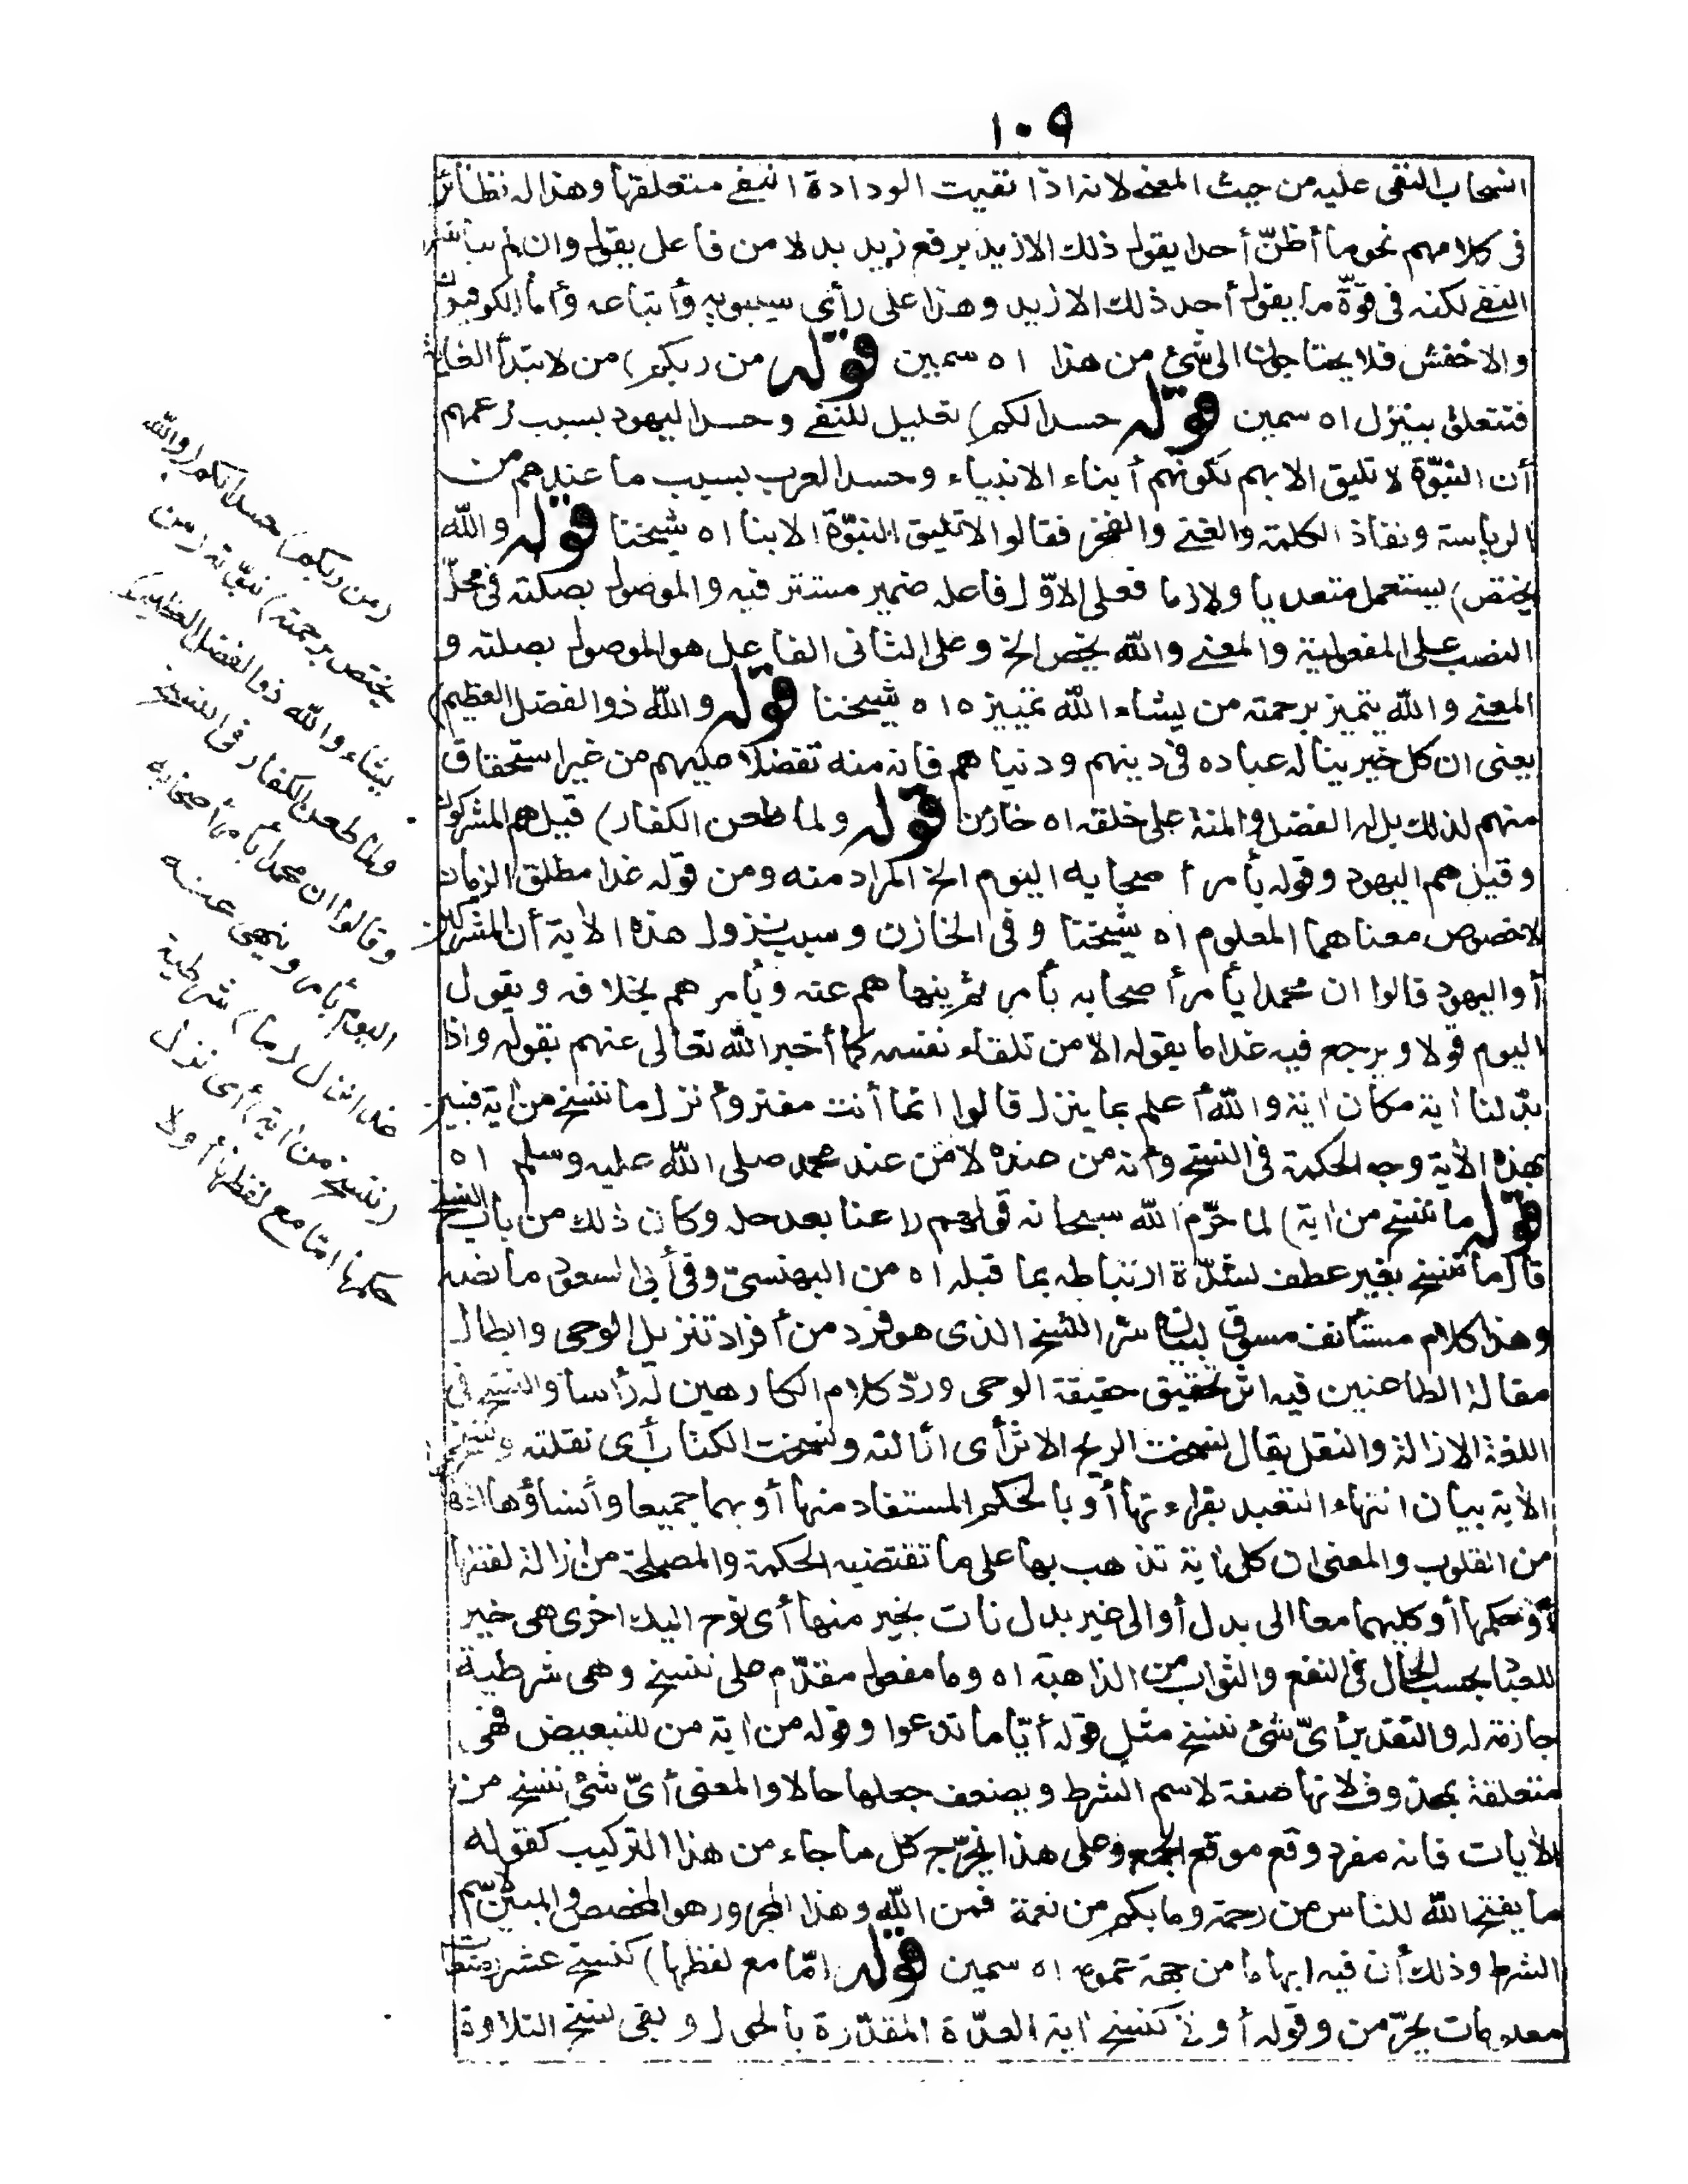 ١٠٩
انسحاب النفى عليه من حيث المعنى لانه اذا نفيت الودادة انتفى متعلقها وهذا له نظائر
فى كلامهم نحو ما أظنّ أحدا يقول ذلك الا زيد برفع زيد بدلا من فاعل يقول وان لم يباشره
النفى لكنه فى قوّة ما يقول أحد ذلك الا زيد وهذا على رأى سيبويه وأتباعه وأما الكوفيون
والاخفش فلا يحتاجون الى شئ من هذا ا ه سمين قوله من ربكم) من لابتدأ الغاية
فتتعلق بينزل ا ه سمين قوله حسدا لكم) تعليل للنفى وحسد اليهود بسبب زعمهم
أن النبوّة لا تليق الا بهم لكونهم أبناء الانبياء وحسد العرب بسبب ما عندهم من
الرياسة ونفاذ الكلمة والغنى والفخر فقالوا لا تليق النبوّة الا بنا ا ه شيخنا قوله والله
يختص) يستعمل متعديا ولازما فعلى الاوّل فاعله ضمير مستتر فيه والموصول بصلته فى محلّ
النصب على المفعولية والمعنى والله يخص الخ وعلى الثانى الفاعل هو الموصول بصلته و
المعنى والله يتميز برحمته من يشاء الله تمييزه ا ه شيخنا قوله والله ذو الفضل العظيم)
يعنى ان كل خير يناله عباده فى دينهم ودنياهم فانه منه تفضلا عليهم من غير استحقاق
منهم لذلك بل له الفضل والمنة على خلقه ا ه خازن قوله ولما طعن الكفار) قيل هم المشركون
وقيل هم اليهود وقوله يأمر أصحابه اليوم الخ المراد منه ومن قوله غدا مطلق الزمان
لا خصوص معناهما المعلوم ا ه شيخنا وفى الخازن وسبب نزول هذه الأية أن المشركين
أو اليهود قالوا ان محمدا يأمر أصحابه بأمر ثم ينهاهم عنه ويأمرهم بخلافه ويقول
اليوم قولا ويرجع فيه غدا ما يقوله الا من تلقاء نفسه كما أخبر الله تعالى عنهم بقوله واذا
بدّلنا أية مكان أية والله أعلم بما ينزل قالوا انما أنت مفتر وأنزل ما ننسخ من أية فبين
بهذه الأية وجه الحكمة فى النسخ وأنه من عنده لا من عند محمد صلى الله عليه وسلم ا ه
قوله ما ننسخ من أية) لما حرّم الله سبحانه قولهم راعنا بعد حله وكان ذلك من باب النسخ
قال ما ننسخ بغير عطف لشدّة ارتباطه بما قبله ا ه من البهنسىّ وفى أبى السعود ما نصه
وهذا كلام مستأنف مسوق لبيان سرّ النسخ الذى هو فرد من أفراد تنزيل الوحى وابطال
مقالة الطاعنين فيه اثر تحقيق حقيقة الوحى وردّ كلام الكارهين له رأسا والنسخ فى
اللغة الازالة والنقل يقال نسخت الريح الاثر أى ازالته ونسخت الكتاب أى نقلته ونسخ
الأية بيان انتهاء التعبد بقراءتها أو بالحكم المستفاد منها أو بهما جميعا وأنساؤها اذهابها
من القلوب والمعنى ان كل أية نذهب بها على ما تقتضيه الحكمة والمصلحة من ازالة لفظها
أو حكمها أو كليهما معا الى بدل أو الى غير بدل نأت بخير منها أى نوح اليك اخرى هى خير
للعباد بحسب الحال فى النفع والثواب من الذاهبة ا ه وما مفعول مقدّم على ننسخ وهى شرطية
جازمة له والتقدير أىّ شئ ننسخ مثل قوله أيّا ما تدعوا وقوله من أية من للتبعيض فهى
متعلقة بمحذوف لانها صفة لاسم الشرط ويضعف جعلها حالا والمعنى أىّ شئ ننسخ من
الأيات فانه مفرد وقع موقع الجمع وعلى هذا يخرّج كل ما جاء من هذا التركيب كقوله
ما يفتح الله للناس من رحمة وما بكم من نعمة فمن الله وهذا المجرور هو المخصص والمبين لاسم
الشرط وذلك أن فيه ابهاما من جهة عمومه ا ه سمين قوله امّا مع لفظها) كنسخ عشر رضعات
معلومات يحرّمن وقوله أو لا كنسخ أية العدّة المقدّرة بالحول وبقى نسخ التلاوة
(من ربكم) حسدا لكم (والله
يختص برحمته) نبوّته (من
يشاء والله ذو الفضل العظيم)
ولما طعن الكفار فى النسخ
وقالوا ان محمدا يأمر أصحابه
اليوم بأمر وينهى عنه
غدا نزل (ما) شرطية
(ننسخ من أية) أى نزل
حكمها امّا مع لفظها أو لا